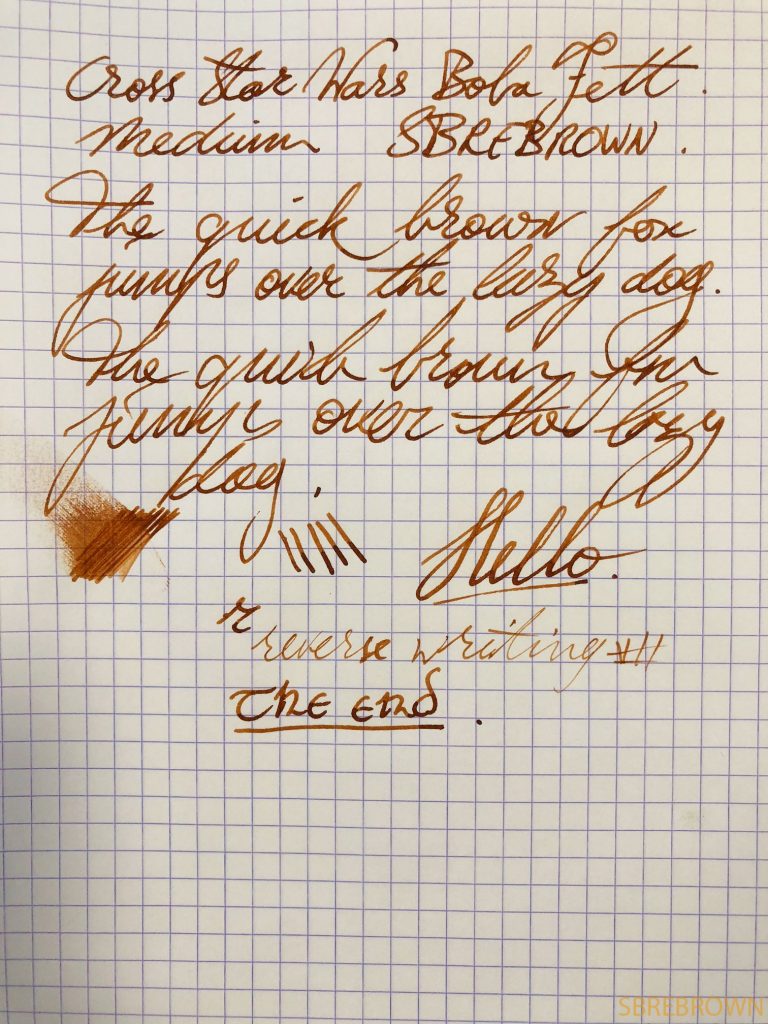 Cross Star Wars Boba Fett.
medium SBREBROWN.
The quick brown fox
jumps over the lazy dog.
The quick brown fox
jumps over the lazy
dog.
Hello.
r
reverse writing
The end.
SBREBROWN